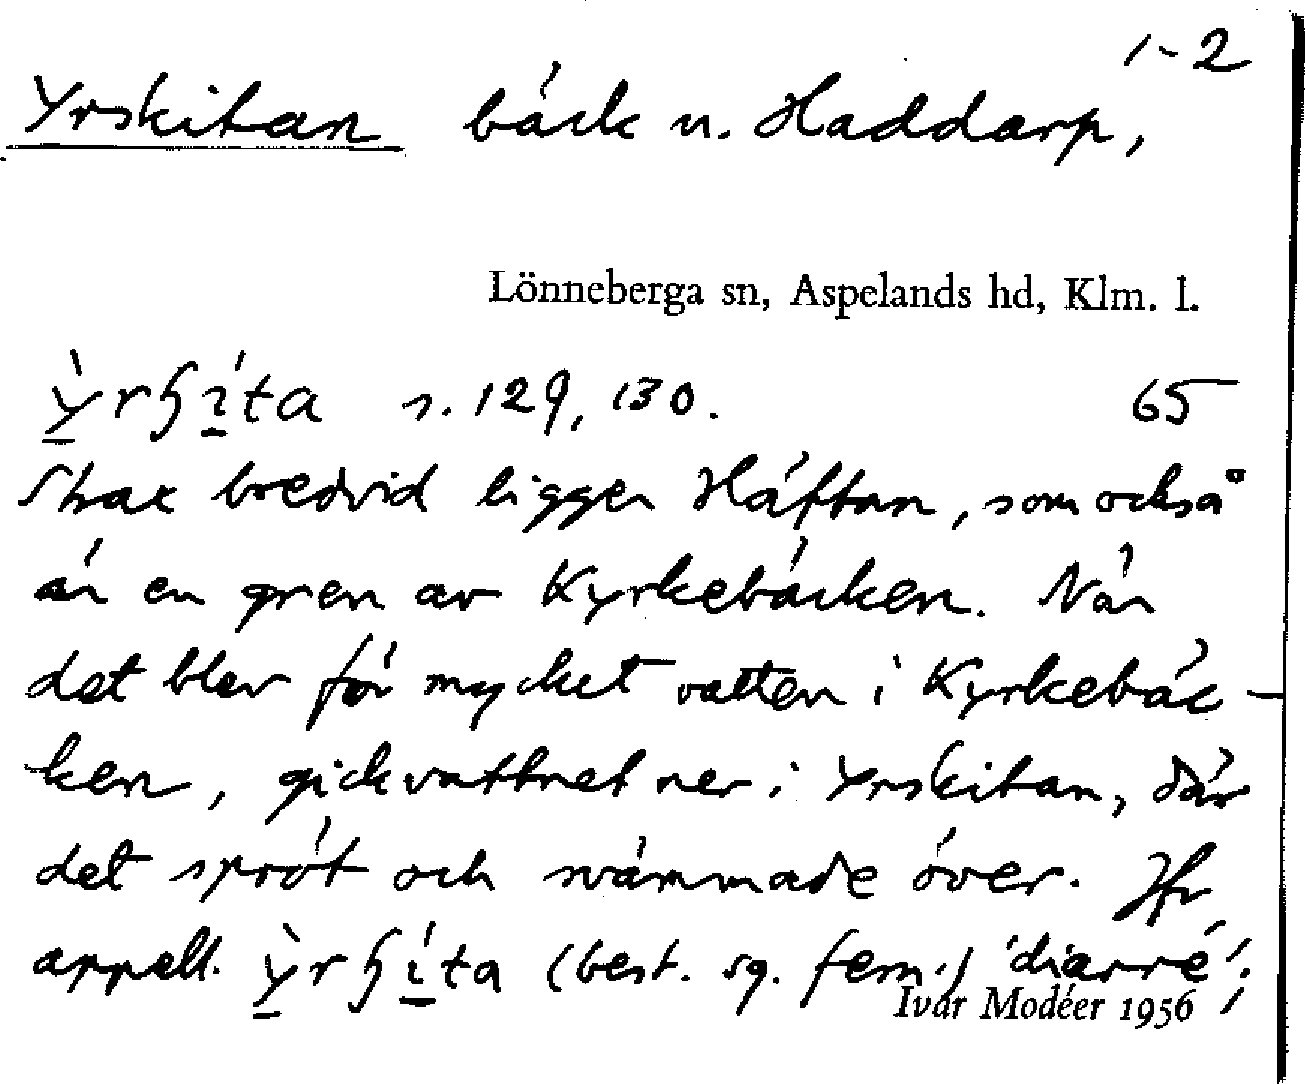 1-2
Yrskitan bäck n. Haddarp,
Lönneberga sn, Aspelands hd, Klm. l.
s. 129, 130. 65
Strax bredvid ligger Häftan, som också
är en gren av Kyrkebäcken. När
det blev för mycket vatten i Kyrkebäc-
ken, gick vattnet ner i Yrskitan, där
det spröt och svämmade över. Jfr
appell. (best. sg. fem.) 'diarré';
Ivar Modéer 1956